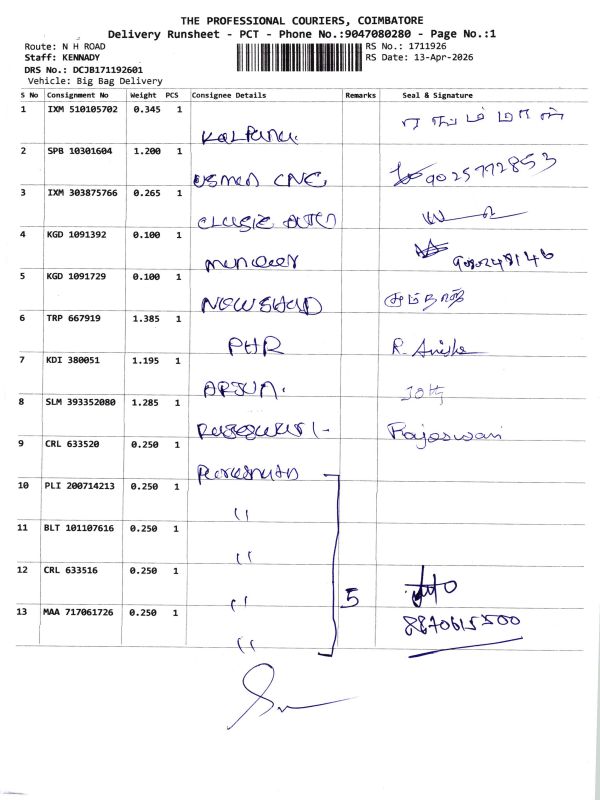 THE PROFESSIONAL COURIERS, COIMBATORE
Delivery Runsheet - PCT - Phone No.:9047080280 - Page No.:1
Route: N H ROAD
RS No.: 1711926
Staff: KENNADY
RS Date: 13-Apr-2026
DRS No.: DCJB171192601
Vehicle: Big Bag Delivery
S No Consignment No Weight PCS Consignee Details Remarks Seal & Signature
1 IXM 510105702 0.345 1
Kalpana.
2 SPB 10301604 1.200 1
USMAN CNC 9025772853
3 IXM 303875766 0.265 1
4 KGD 1091392 0.100 1
5 KGD 1091729 0.100 1
NOWSHAD
6 TRP 667919 1.385 1
PHR R. Anisha
7 KDI 380051 1.195 1
ARJUN.
8 SLM 393352080 1.285 1
Rajeswari
9 CRL 633520 0.250 1
10 PLI 200714213 0.250 1
"
11 BLT 101107616 0.250 1
"
12 CRL 633516 0.250 1
" 5
13 MAA 717061726 0.250 1
8870615500
"